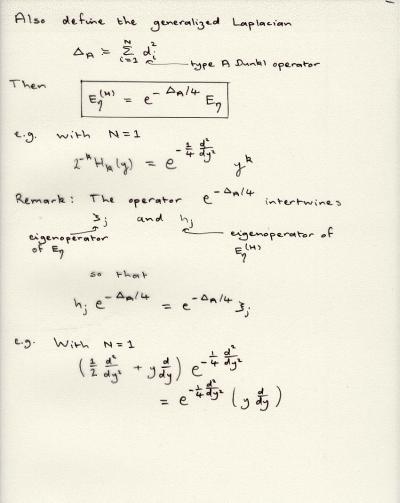 Also define the generalized Laplacian
Δ_A := Σ_{i=1}^{N} d_i^2
type A Dunkl operator
Then
E_η^{(H)} = e^{-Δ_A/4} E_η
e.g. with N=1
2^{-k} H_k(y) = e^{-\frac{1}{4} \frac{d^2}{dy^2}} y^k
Remark: The operator e^{-Δ_A/4} intertwines
ξ_j and h_j
eigenoperator of E_η
eigenoperator of E_η^{(H)}
so that
h_j e^{-Δ_A/4} = e^{-Δ_A/4} ξ_j
e.g. With N=1
(\frac{1}{2} \frac{d^2}{dy^2} + y \frac{d}{dy}) e^{-\frac{1}{4} \frac{d^2}{dy^2}}
= e^{-\frac{1}{4} \frac{d^2}{dy^2}} (y \frac{d}{dy})